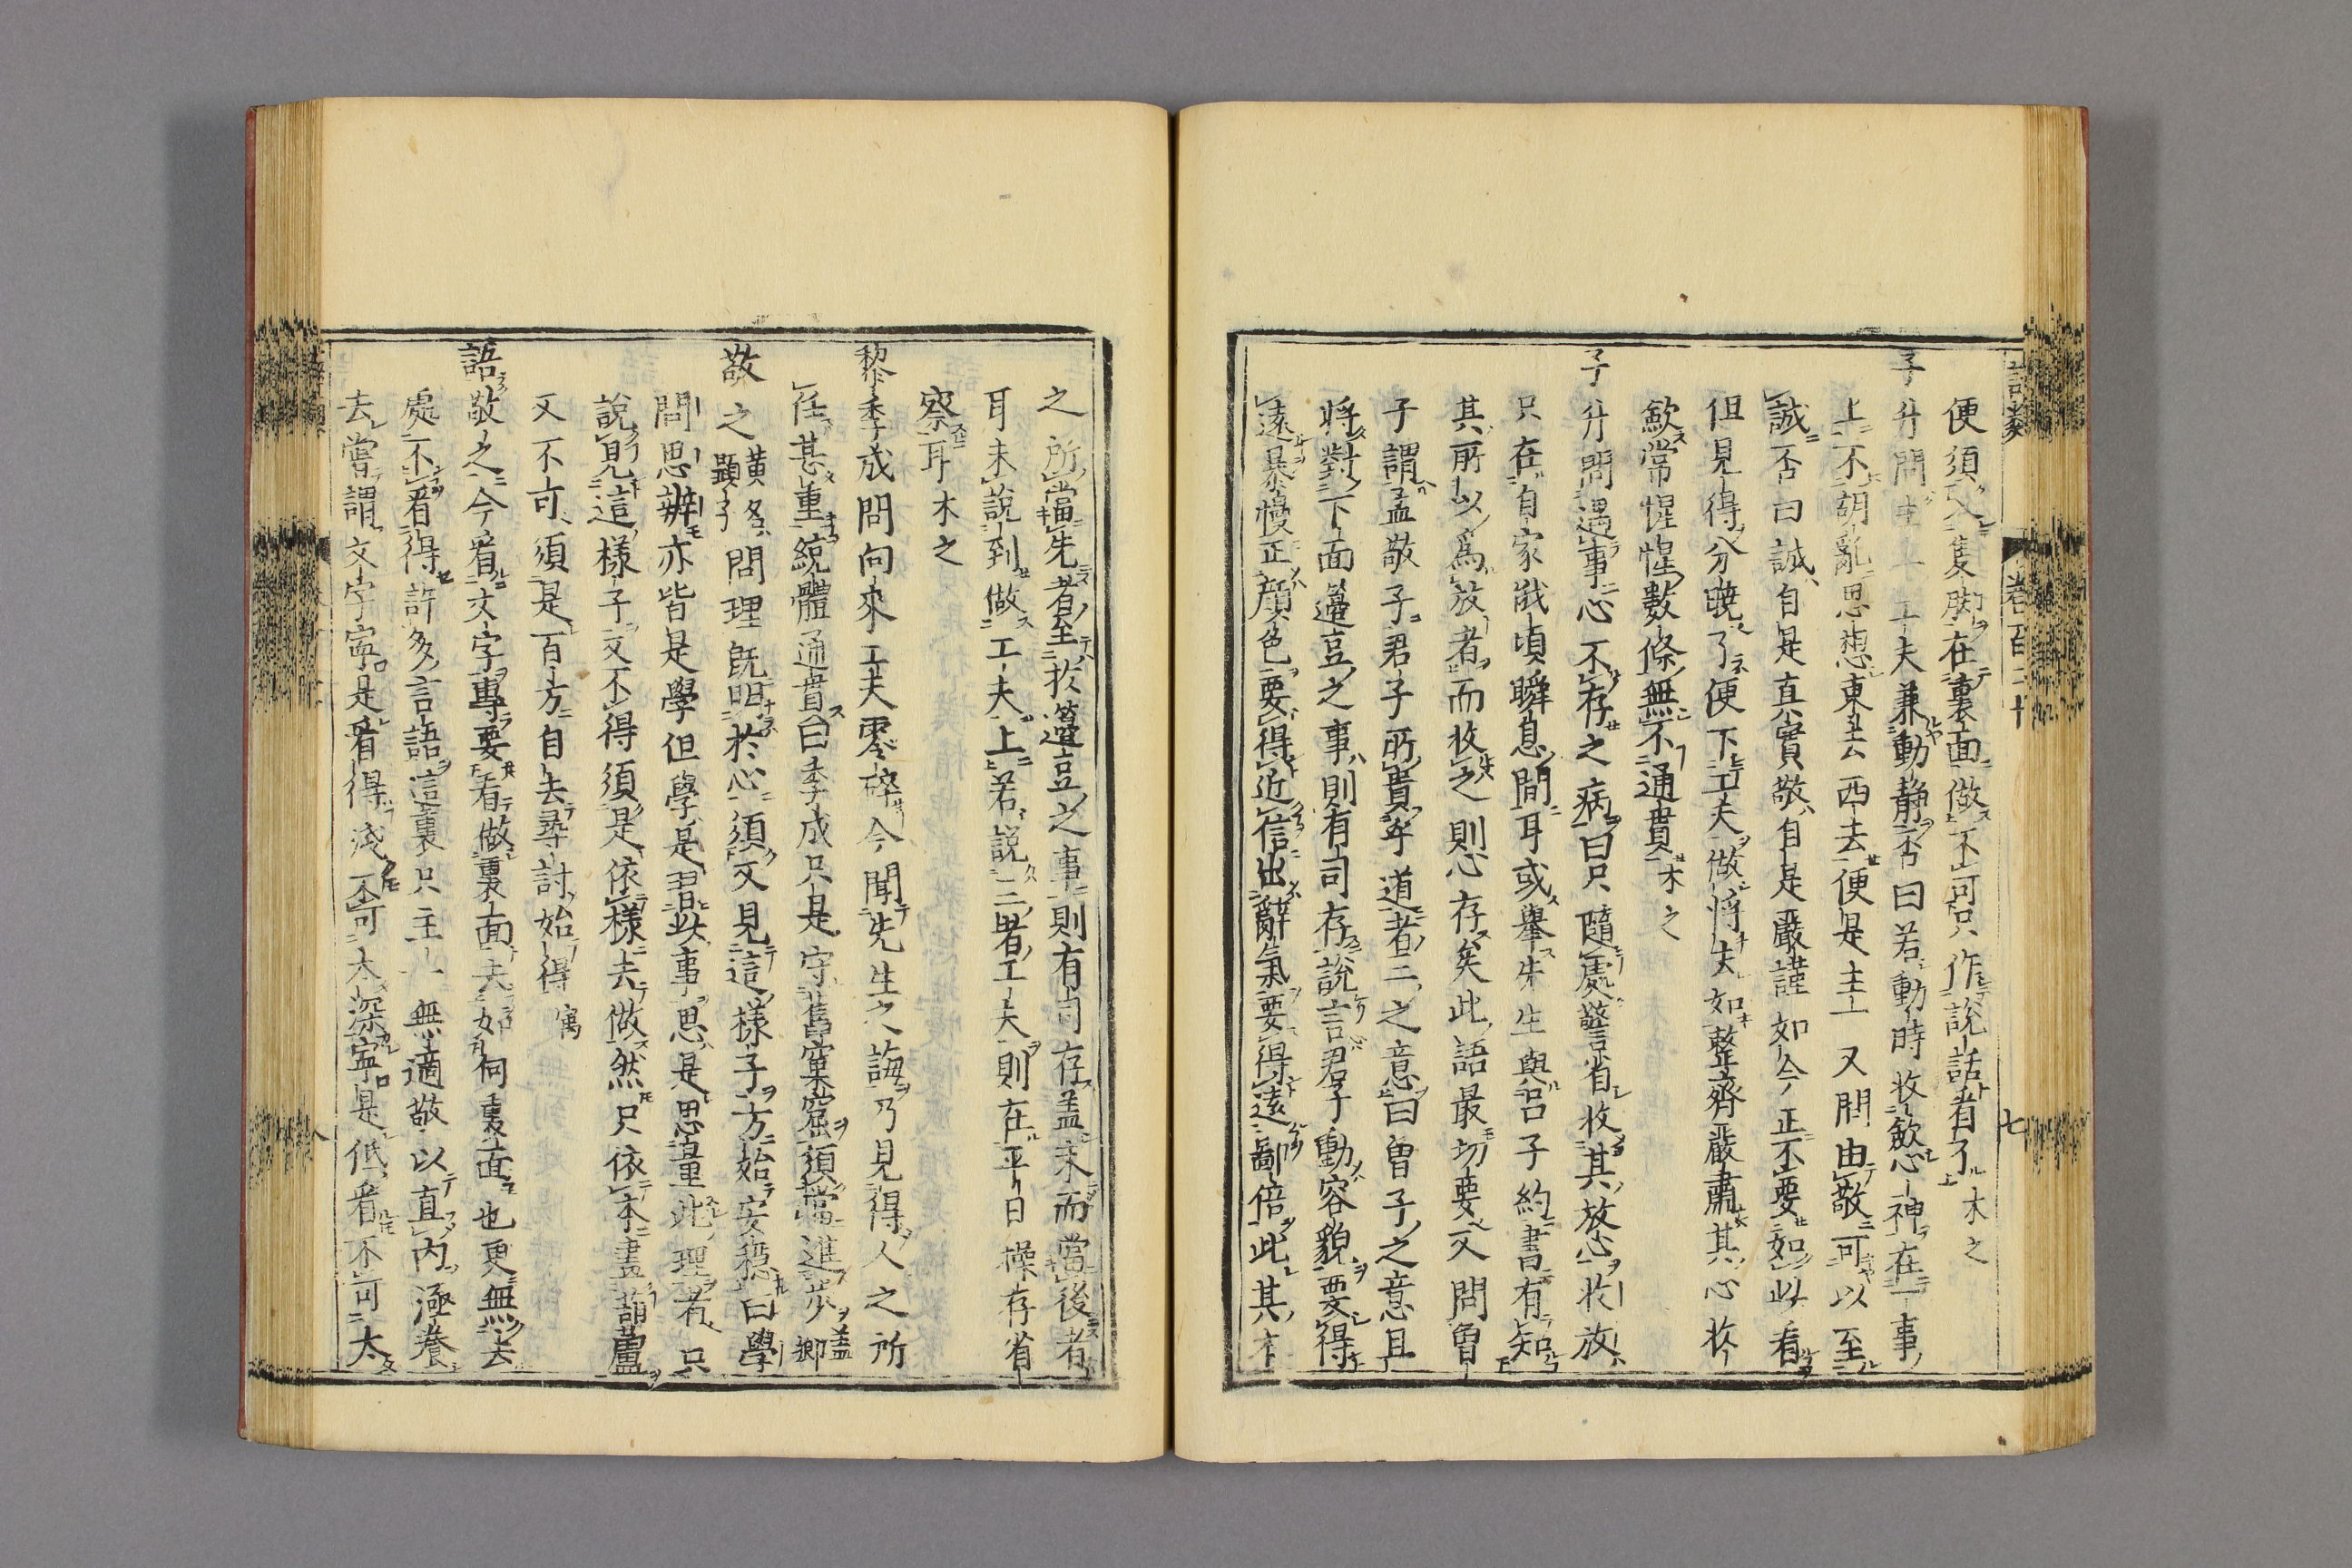 語類 卷百二十 七
便須入隻脚在裏面做不可只作說話看了木之
子升問主一工夫兼動靜否曰若動時收斂心神在一事
上不胡亂思想東去西去便是主一又問由敬可以至
誠否曰誠自是真實敬自是嚴謹如今正不要如此看
但見得分曉了便下工夫做將去如整齊嚴肅其心收
歛常惺惺數條無不通貫木之
子升問遇事心不存之病曰只隨處警省收其放心收放
只在自家俄頃瞬息間耳或舉先生與呂子約書有知
其所以為放者而收之則心存矣此語最切要又問曾
子謂孟敬子君子所貴乎道者三之意曰曾子之意且
將對下面籩豆之事則有司存說言君子動容貌要得
遠暴慢正顔色要得近信出辭氣要得遠鄙倍此其本
之所當先者至於籩豆之事則有司存蓋末而當後者
耳未說到做工夫上若說三者工夫則在平日操存省
察耳木之
黎季成問向來工夫零碎今聞先生之誨乃見得人之所
任甚重統體通貫曰季成只是守舊窠窟須當進歩蓋卿
敬之黃名顯子問理旣明於心須又見這樣子方始安穩曰學
問思辨亦皆是學但學是習此事思是思量此理者只
說見這樣子又不得須是依樣去做然只依本畫葫蘆
又不可須是百方自去尋討始得㝢
語敬之今看文字專要看做裏面去如何裏面也更無去
處不看得許多言語這裏只主一無適敬以直內涵養
去嘗謂文字寧是看得淺不可太深寧是低看不可太